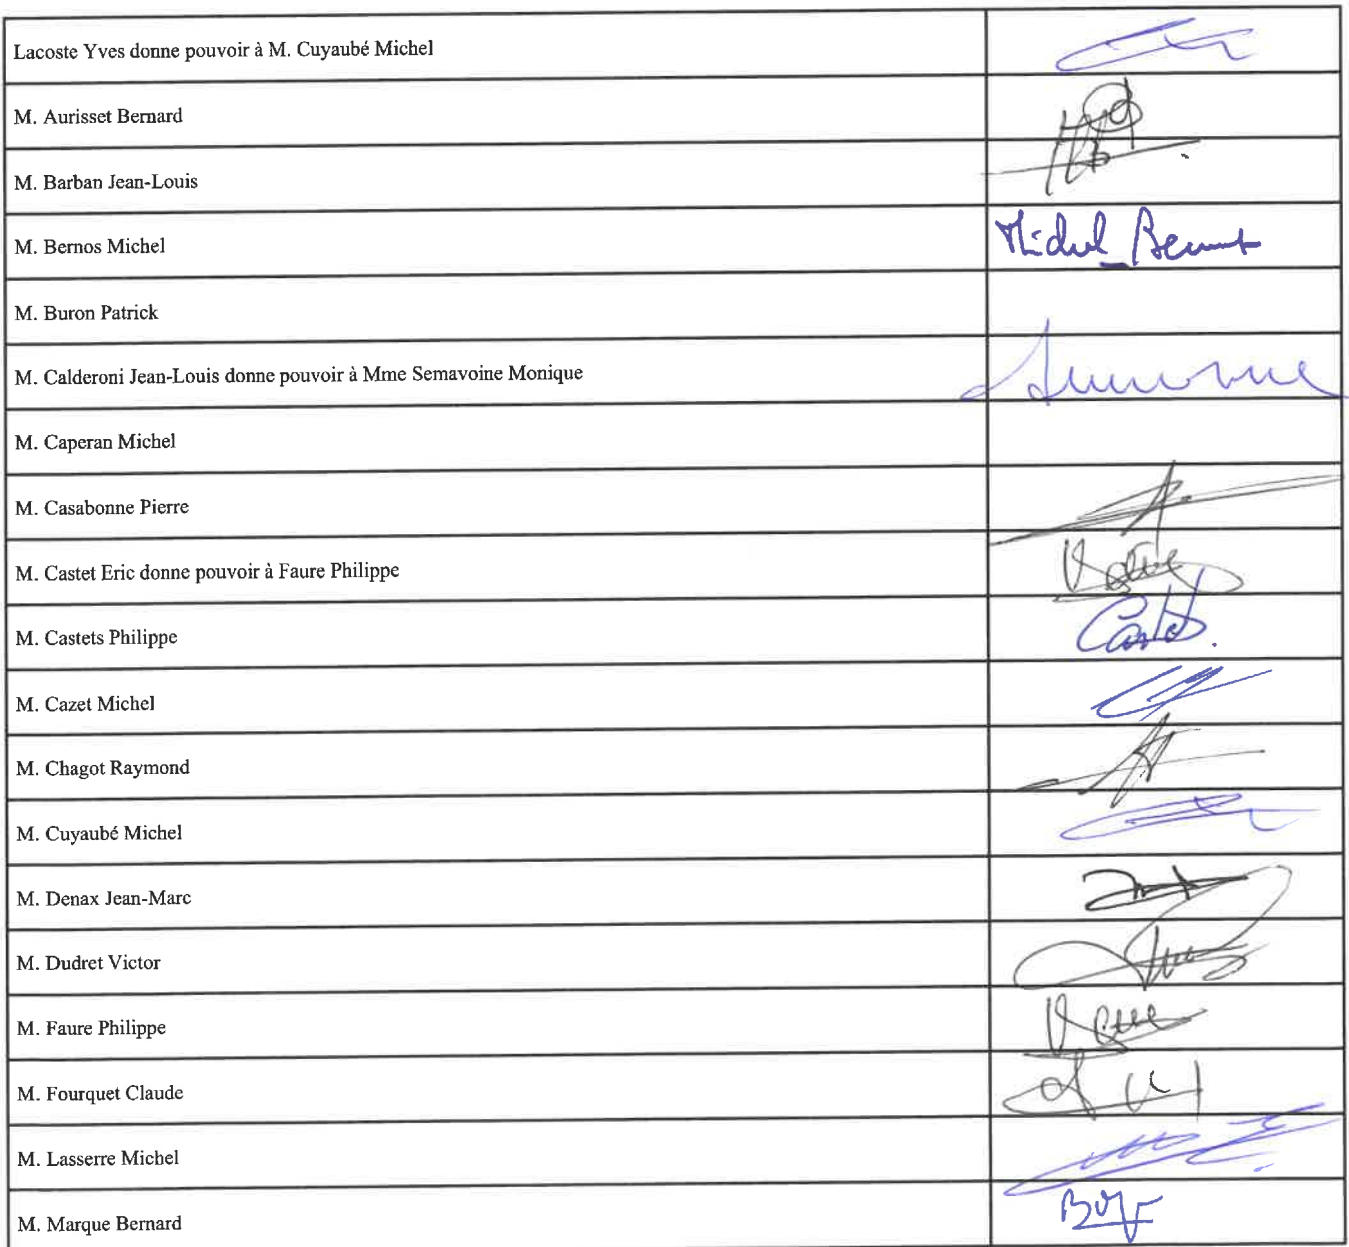 Lacoste Yves donne pouvoir à M. Cuyaubé Michel
M. Aurisset Bernard
M. Barban Jean-Louis
M. Bernos Michel
Michel Bernos
M. Buron Patrick
M. Calderoni Jean-Louis donne pouvoir à Mme Semavoine Monique
M. Caperan Michel
M. Casabonne Pierre
M. Castet Eric donne pouvoir à Faure Philippe
M. Castets Philippe
Castets
M. Cazet Michel
M. Chagot Raymond
M. Cuyaubé Michel
M. Denax Jean-Marc
M. Dudret Victor
M. Faure Philippe
M. Fourquet Claude
M. Lasserre Michel
M. Marque Bernard